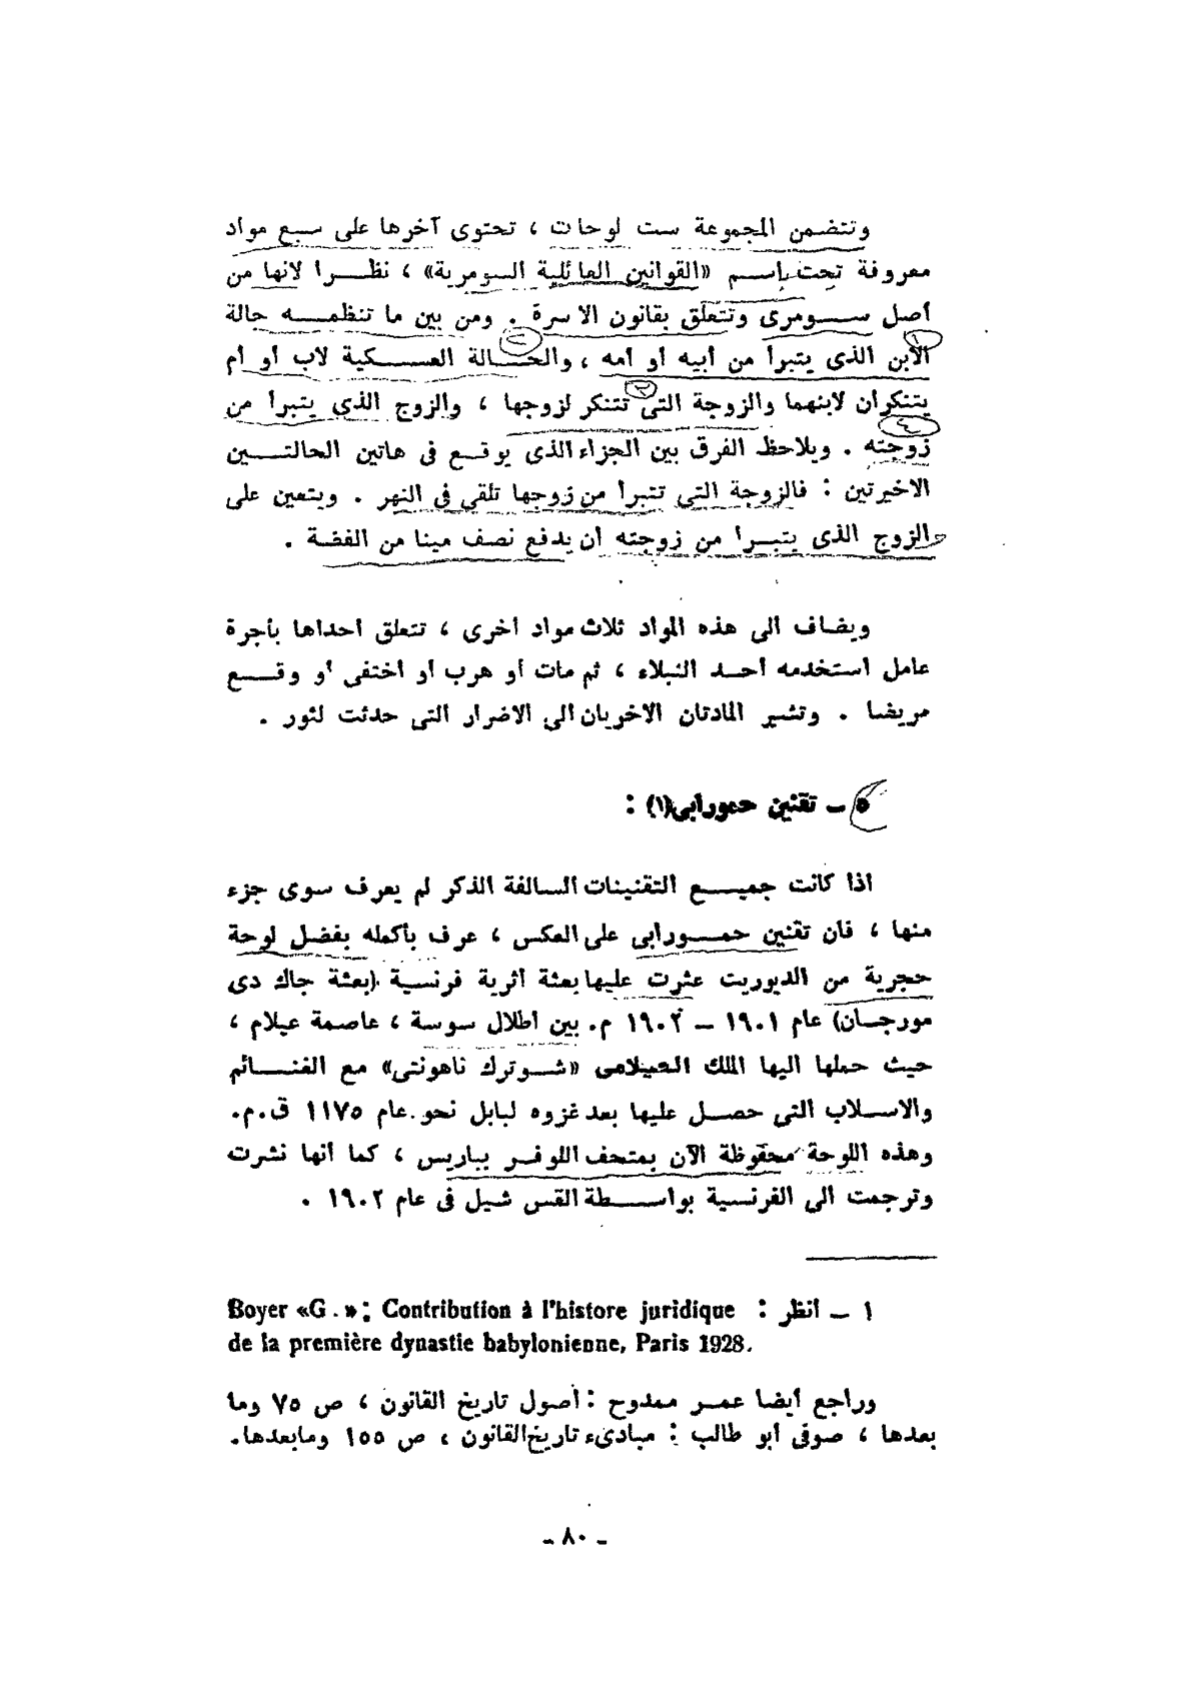 وتتضمن المجموعة ست لوحات ، تحتوى آخرها على سبع مواد
معروفة تحت إسم «القوانين العائلية السومرية» ، نظرا لانها من
أصل سومرى وتتعلق بقانون الاسرة . ومن بين ما تنظمه حالة
الابن الذى يتبرأ من أبيه أو أمه ، والحالة العسكية لاب أو أم
يتنكران لابنهما والزوجة التى تتنكر لزوجها ، والزوج الذى يتبرأ من
زوجته . ويلاحظ الفرق بين الجزاء الذى يوقع فى هاتين الحالتين
الاخيرتين : فالزوجة التى تتبرأ من زوجها تلقى فى النهر . ويتعين على
الزوج الذى يتبرا من زوجته أن يدفع نصف مينا من الفضة .
ويضاف الى هذه المواد ثلاث مواد اخرى ، تتعلق احداها بأجرة
عامل استخدمه أحد النبلاء ، ثم مات أو هرب أو اختفى أو وقع
مريضا . وتشير المادتان الاخريان الى الاضرار التى حدثت لثور .
٥ ـ تقنين حمورابى(١) :
اذا كانت جميع التقنينات السالفة الذكر لم يعرف سوى جزء
منها ، فان تقنين حمورابى على العكس ، عرف بأكمله بفضل لوحة
حجرية من الديوريت عثرت عليها بعثة أثرية فرنسية (بعثة جاك دى
مورجان) عام ١٩٠١ – ١٩٠٢ م. بين اطلال سوسة ، عاصمة عيلام ،
حيث حملها اليها الملك العيلامى «شوترك ناهونتى» مع الغنائم
والاسلاب التى حصل عليها بعد غزوه لبابل نحو عام ١١٧٥ ق.م.
وهذه اللوحة محفوظة الآن بمتحف اللوفر بباريس ، كما أنها نشرت
وترجمت الى الفرنسية بواسطة القس شيل فى عام ١٩٠٢ .
١ ـ انظر : Boyer «G . »: Contribution à l'histore juridique
de la première dynastie babylonienne, Paris 1928.
وراجع أيضا عمر ممدوح : أصول تاريخ القانون ، ص ٧٥ وما
بعدها ، صوفى أبو طالب : مبادىء تاريخ القانون ، ص ١٥٥ ومابعدها.
- ٨٠ -